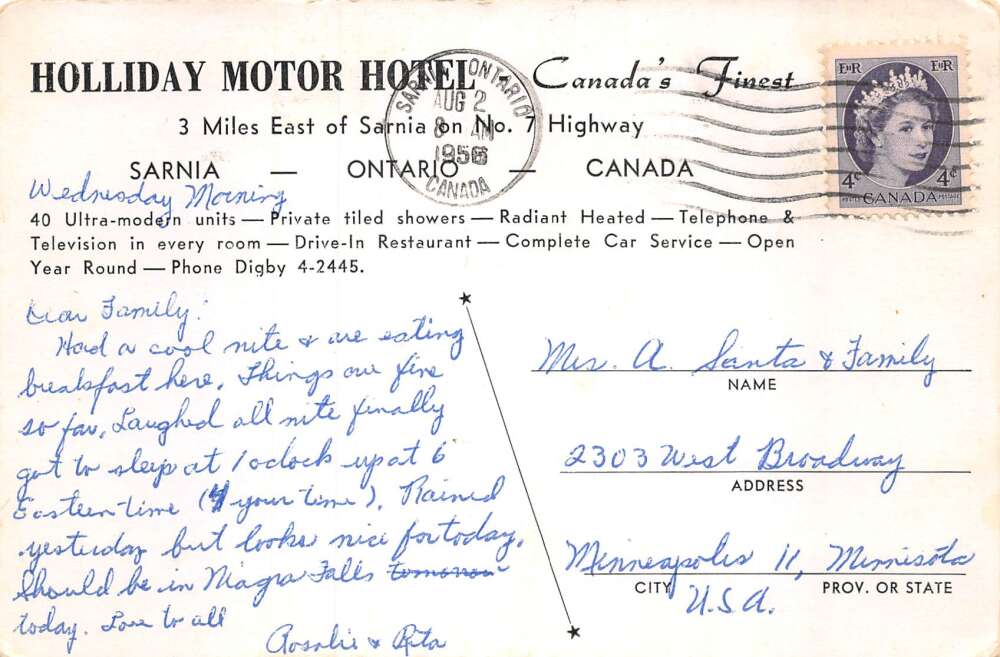 HOLLIDAY MOTOR HOTEL Canada's Finest
3 Miles East of Sarnia on No. 7 Highway
SARNIA — ONTARIO — CANADA
SARNIA ONTARIO
AUG 2
8 AM
1956
CANADA
EIIR EIIR
4¢ 4¢
CANADA
POSTES POSTAGE
Wednesday Morning
40 Ultra-modern units — Private tiled showers — Radiant Heated — Telephone &
Television in every room — Drive-In Restaurant — Complete Car Service — Open
Year Round — Phone Digby 4-2445.
Dear Family:
Had a cool nite & are eating
breakfast here. Things are fine
so far. Laughed all nite finally
got to sleep at 1 oclock up at 6
Eastern time (4 your time). Rained
yesterday but looks nice for today.
Should be in Niagra Falls tomorrow
today. Love to all
Rosalie & Rita
Mrs. A. Santa & Family
NAME
2303 West Broadway
ADDRESS
Minneapolis 11, Minnisota
CITY PROV. OR STATE
U.S.A.